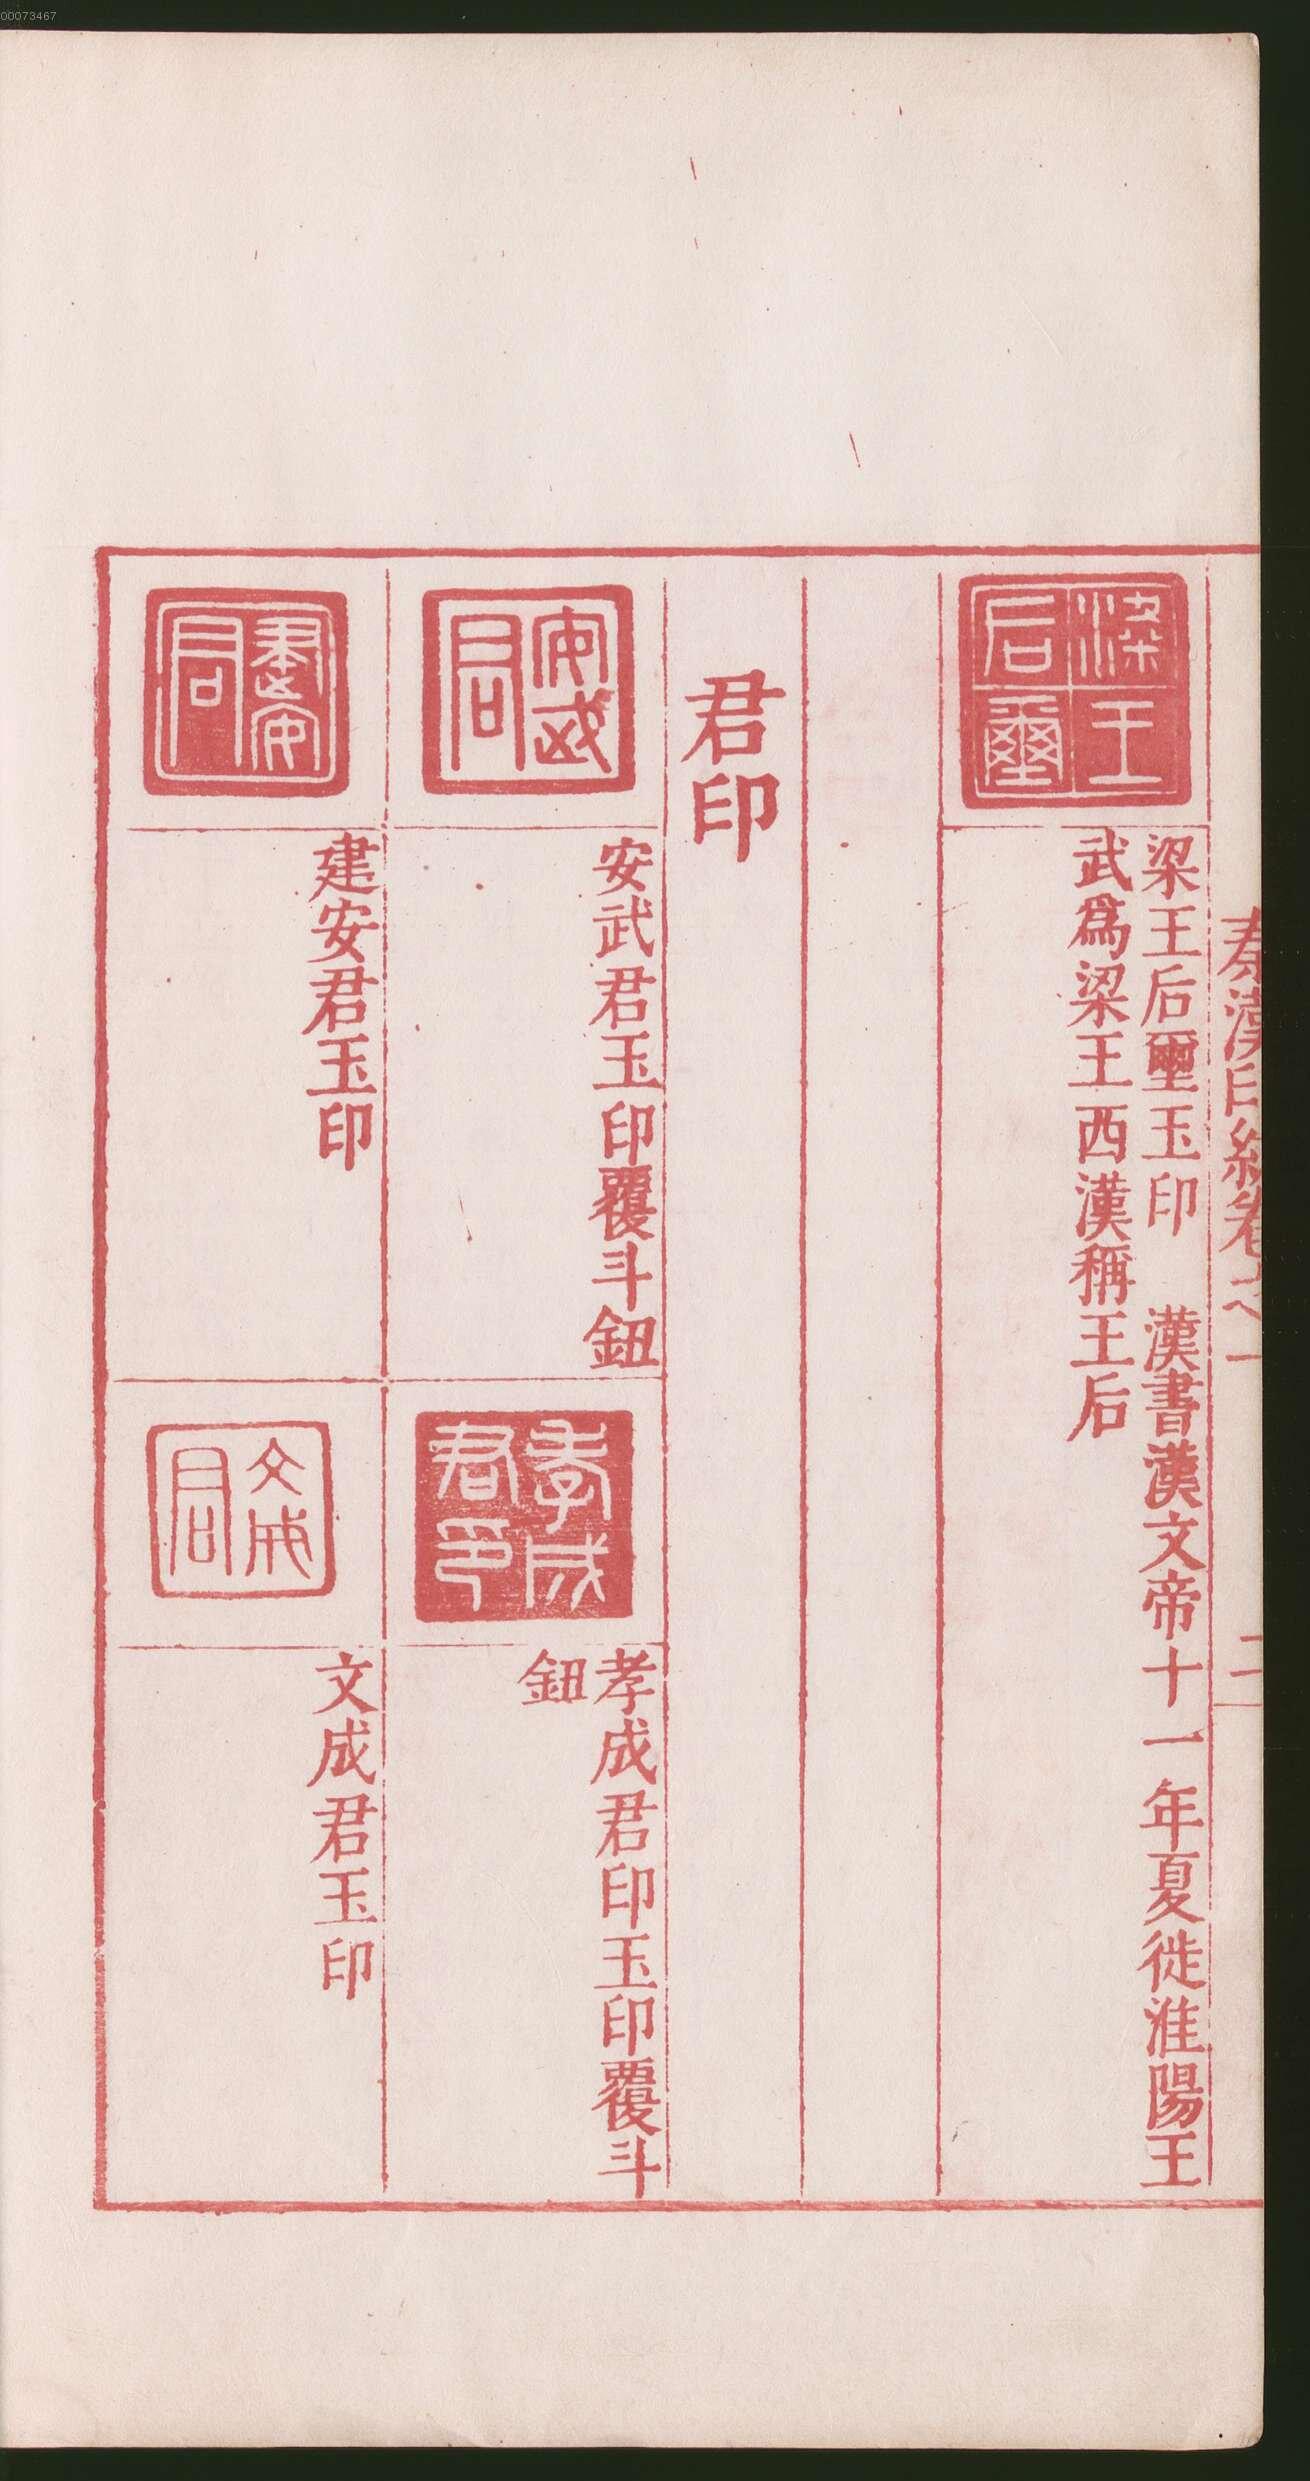 00073467
秦漢印統卷之一
二
梁王后璽
梁王后璽玉印 漢書漢文帝十一年夏徙淮陽王
武爲梁王西漢稱王后
君印
安武君
安武君玉印覆斗鈕
孝成君印
孝成君印玉印覆斗
鈕
建安君
建安君玉印
文成君
文成君玉印